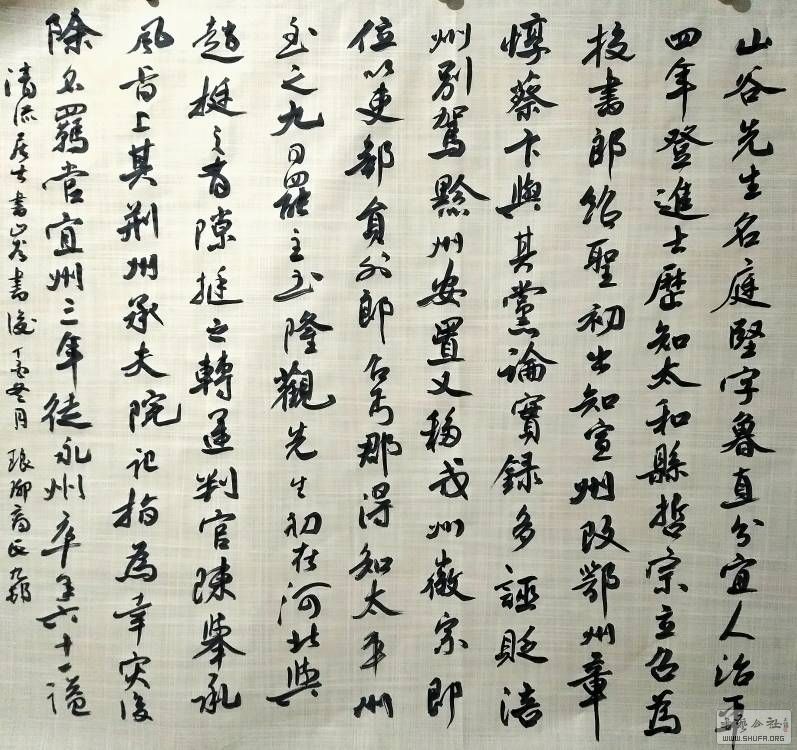 山谷先生名庭堅字魯直分宜人治平
四年登進士歷知太和縣哲宗立召為
校書郎紹聖初出知宣州改鄂州章
惇蔡卞與其黨論實録多誣貶涪
州別駕黔州安置又移戎州徽宗即
位以吏部員外郎召丐郡得知太平州
至之九日罷主玉隆觀先生初在河北與
趙挺之有隙挺之轉運判官陳舉承
風旨上其荆州承天院記指為幸灾後
除名羈管宜州三年徙永州卒年六十一謚
清流居士書山谷書後丁酉冬月琅琊
WWW.SHUFA.ORG